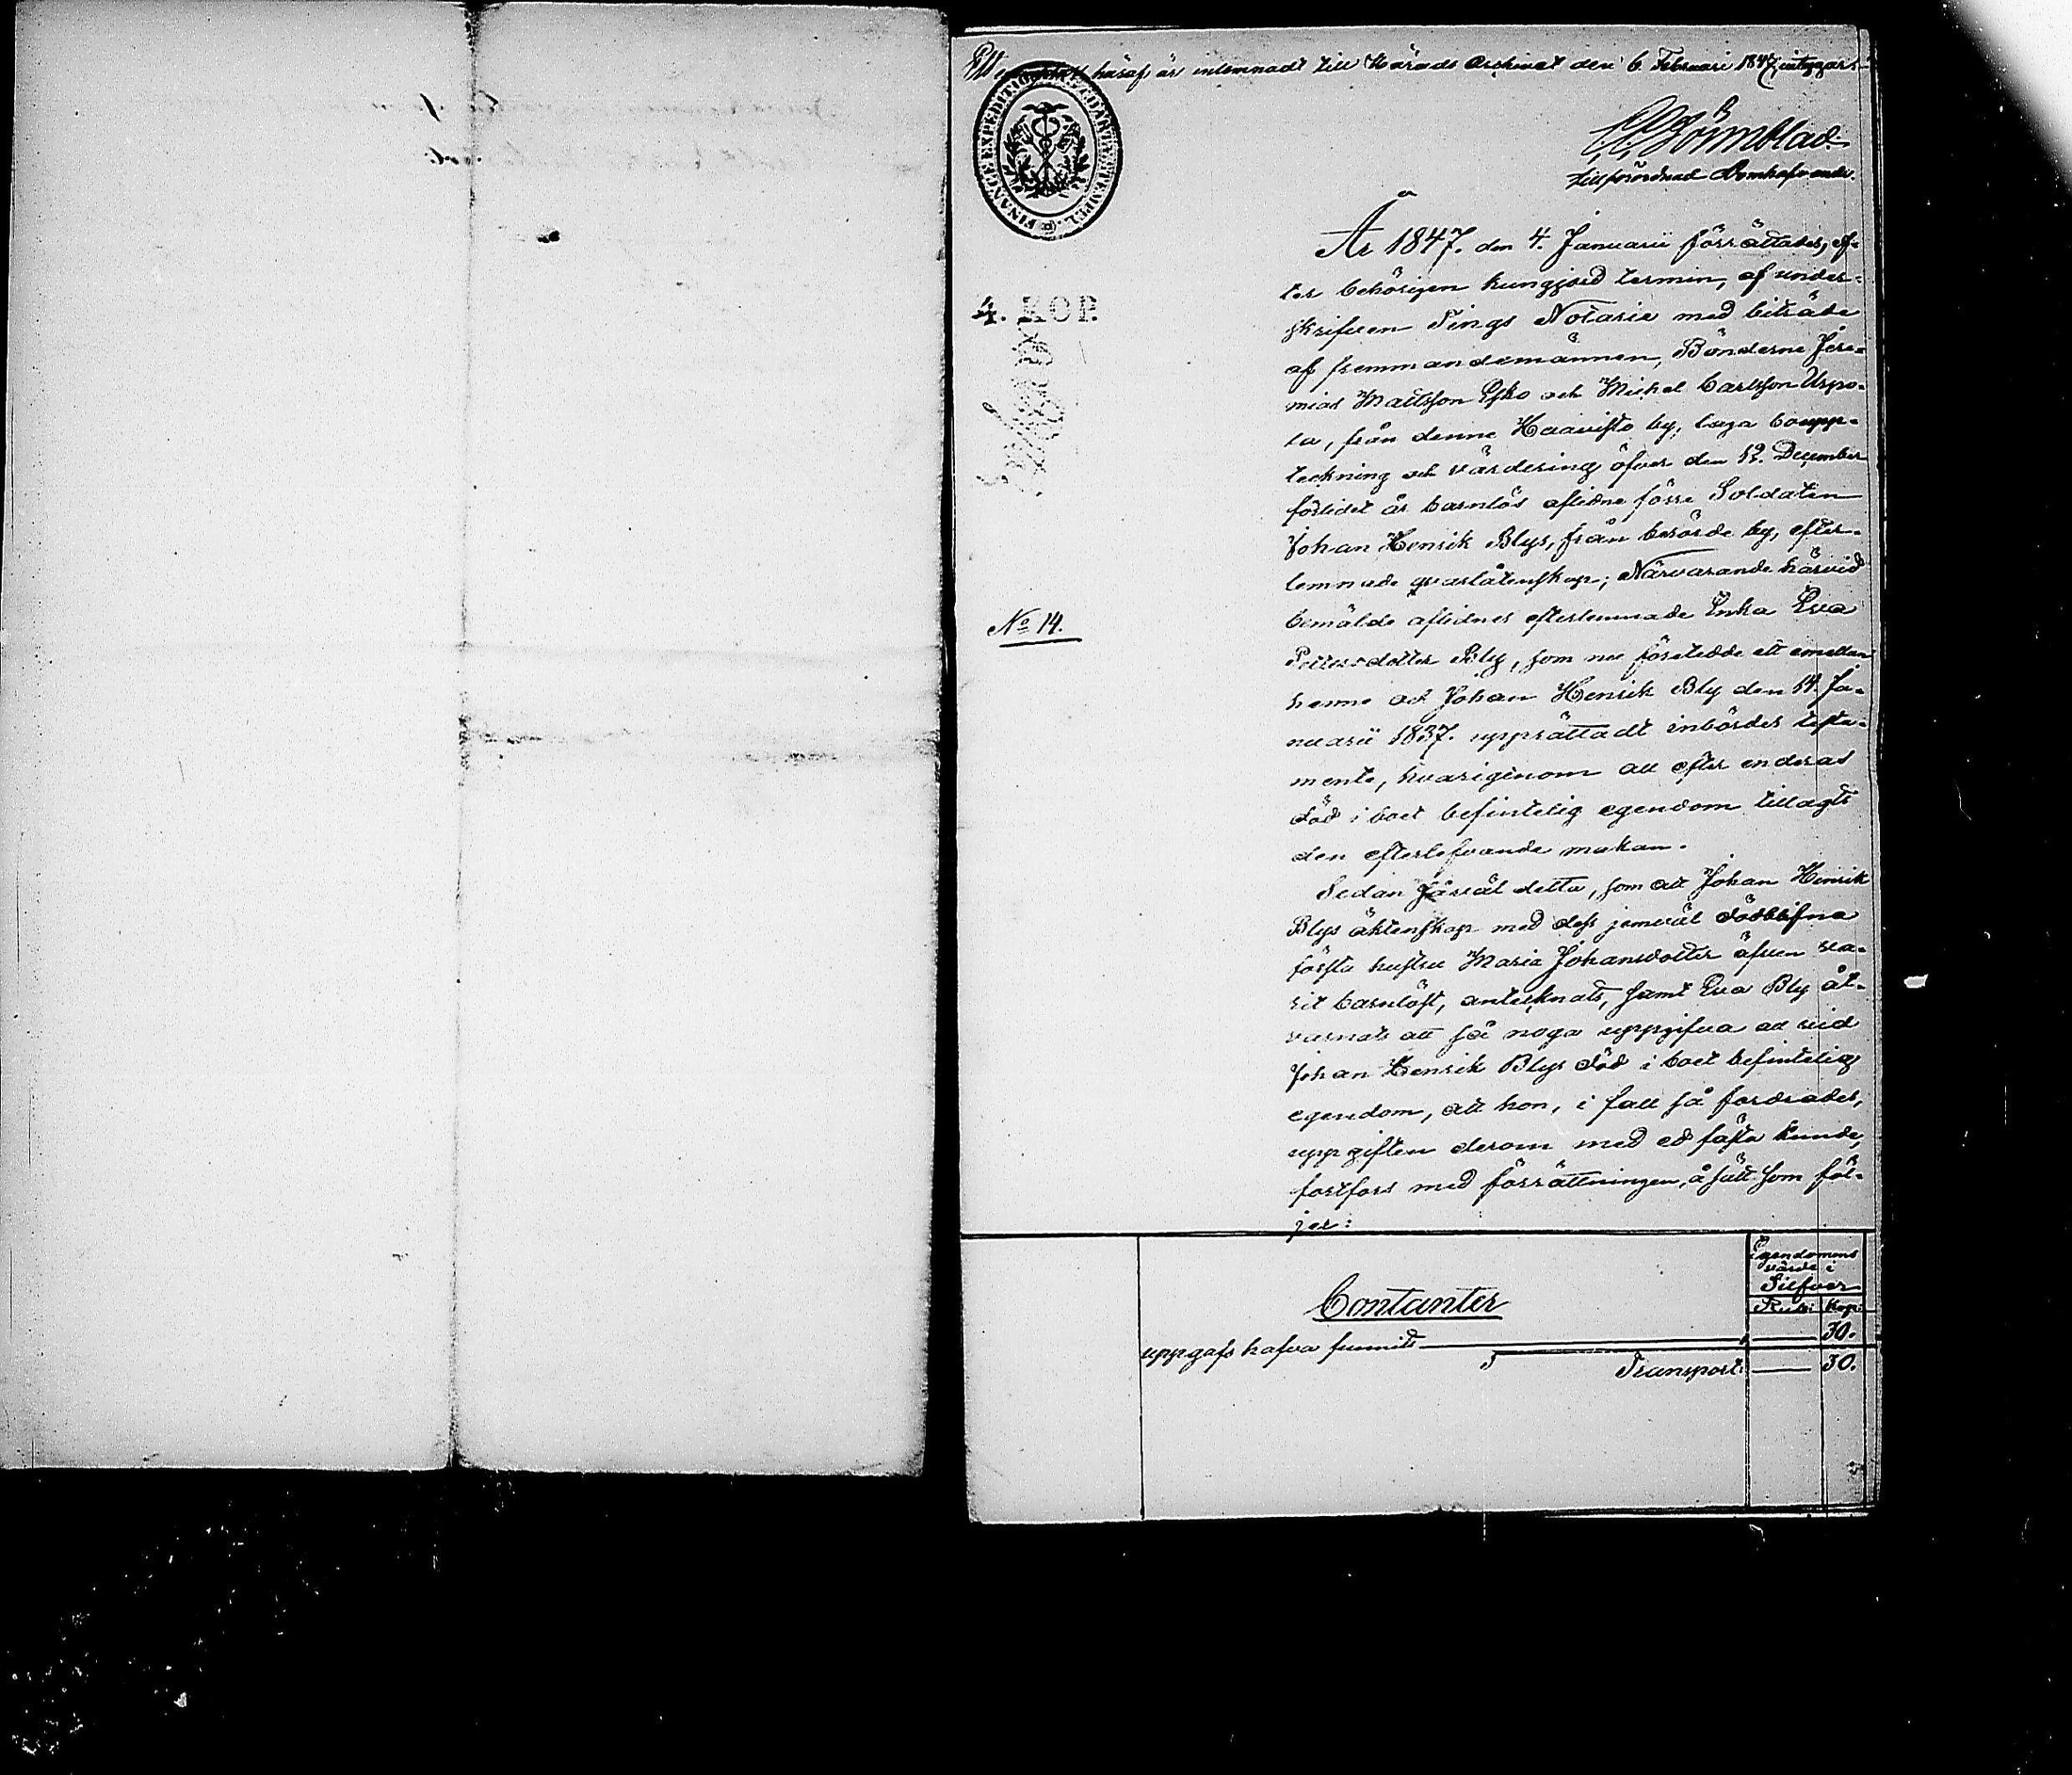 häraf är inlemnadt till Härads Archivet den 6. Februari 1847, intygar:
tillförordnad Domhafvande.
FINANCE EXPEDITIONENS CHARTÆ STEMPEL.
4. KOP.
År 1847. den 4. Januarii förrättades, ef-
ter behörigen kungjord termin, af under-
skrifven Tings Notarie med biträde
af fremmandemännen, Bönderne Jere-
mias Mattsson Esko och Michel Carlsson Uspo-
la, från denne Haavisto by, laga boupp-
teckning och värdering öfver den 12. December
förlidet år barnlös aflidne förre Soldaten
Johan Henrik Blys, från berörde by, efter-
lemnade qvarlåtenskap; Närvarande härvid
bemälde aflidnes efterlemnade Enka Eva
Pettersdotter Bly, som nu företedde ett emellan
henne och Johan Henrik Bly den 14. Ja-
nuarii 1837. upprättadt inbördes testa-
mente, hvarigenom all efter enderas
död i boet befintelig egendom tillagts
den efterlefvande makan.
Sedan såväl detta, som att Johan Henrik
Blys äktenskap med dess jemväl dödblifna
första hustru Maria Johansdotter äfven va-
rit barnlöst, antecknats, samt Eva Bly åt-
varnats att så noga uppgifva all vid
Johan Henrik Blys död i boet befintelig
egendom, att hon, i fall så fordrades,
uppgiften derom med ed fästa kunde,
fortfors med förrättningen, å sätt som föl-
jer:
No 14.
Egendomens
värde i
Silfver
Rub: Kop:
Contanter
uppgafs hafva funnits 30.
Transport: 30.